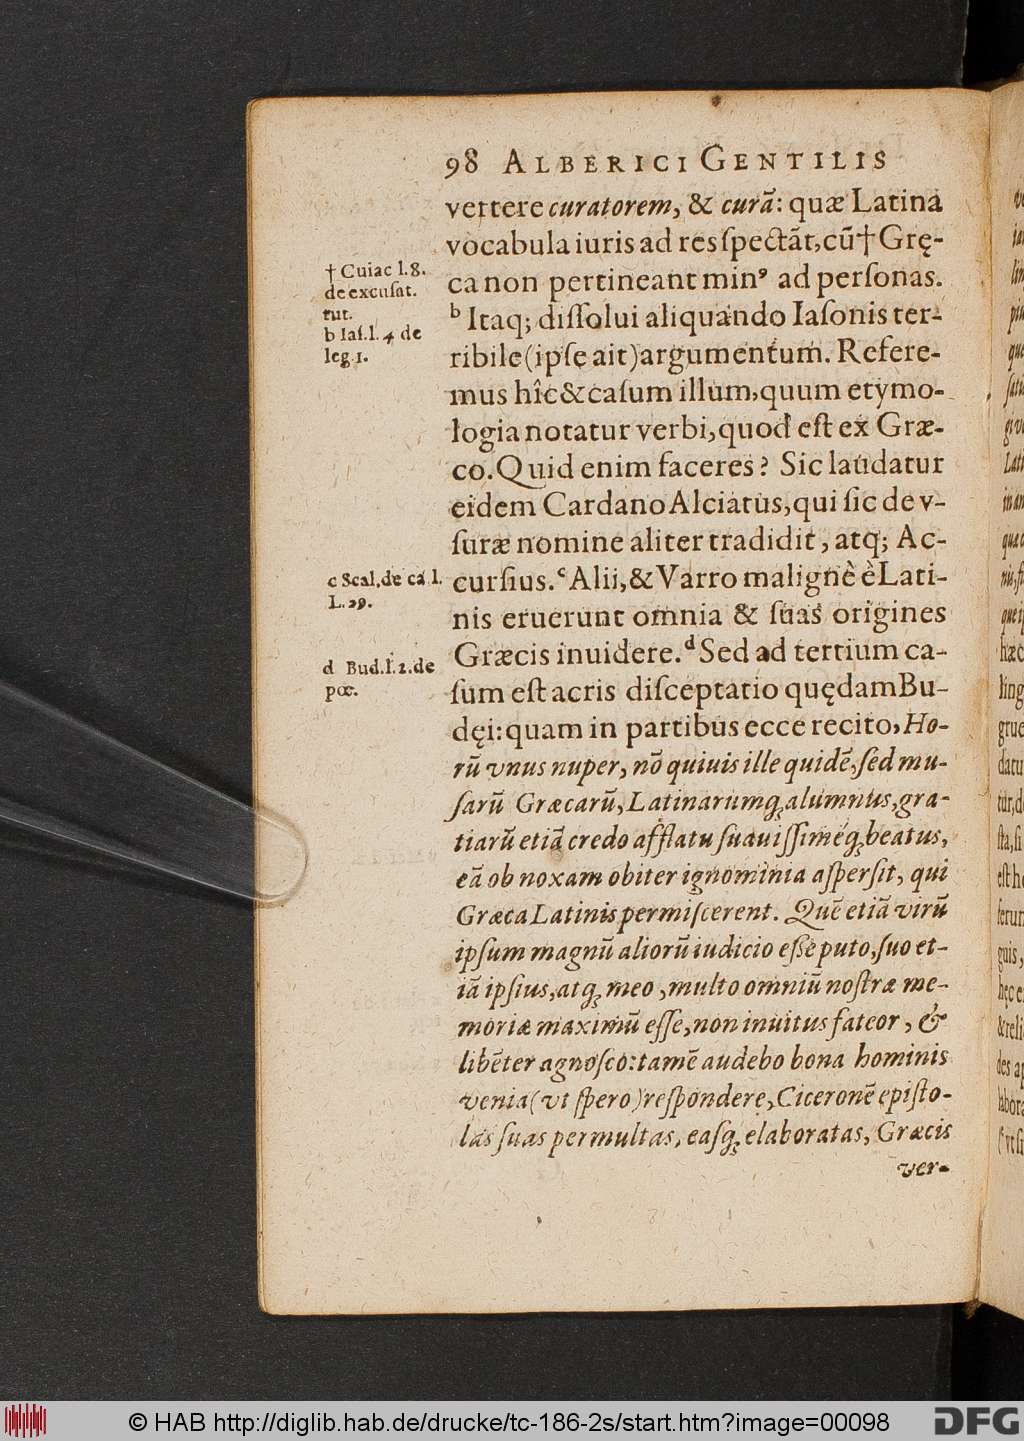 98 ALBERICI GENTILIS
vertere curatorem, & curã: quæ Latina
vocabula iuris ad res spectãt, cũ † Grę-
ca non pertineant minꝰ ad personas.
† Cuiac l. 8.
de excusat.
tut.
ᵇ Itaq; dissolui aliquando Iasonis ter-
b Ias. l. 4 de
leg 1.
ribile (ipse ait) argumentum. Refere-
mus hîc & casum illum, quum etymo-
logia notatur verbi, quod est ex Græ-
co. Quid enim faceres? Sic laudatur
eidem Cardano Alciatus, qui sic de v-
suræ nomine aliter tradidit, atq; Ac-
cursius. ᶜ Alii, & Varro malignè è Lati-
c Scal. de ca l.
L. 29.
nis eruerunt omnia & suas origines
Græcis inuidere. ᵈ Sed ad tertium ca-
d Bud. l. 2. de
pœ.
sum est acris disceptatio quędam Bu-
dęi: quam in partibus ecce recito, Ho-
rũ vnus nuper, nõ quiuis ille quidẽ, sed mu-
sarũ Græcarũ, Latinarumq; alumnus, gra-
tiarũ etiã credo afflatu suauissimeq́; beatus,
eã ob noxam obiter ignominia aspersit, qui
Græca Latinis permiscerent. Quẽ etiã virũ
ipsum magnũ aliorũ iudicio esse puto, suo et-
iã ipsius, atq; meo, multo omniũ nostræ me-
moriæ maximũ esse, non inuitus fateor, &
libẽter agnosco: tamẽ audebo bona hominis
venia (vt spero) respondere, Ciceronẽ episto-
las suas permultas, easq; elaboratas, Græcis
ver-
© HAB http://diglib.hab.de/drucke/tc-186-2s/start.htm?image=00098
DFG